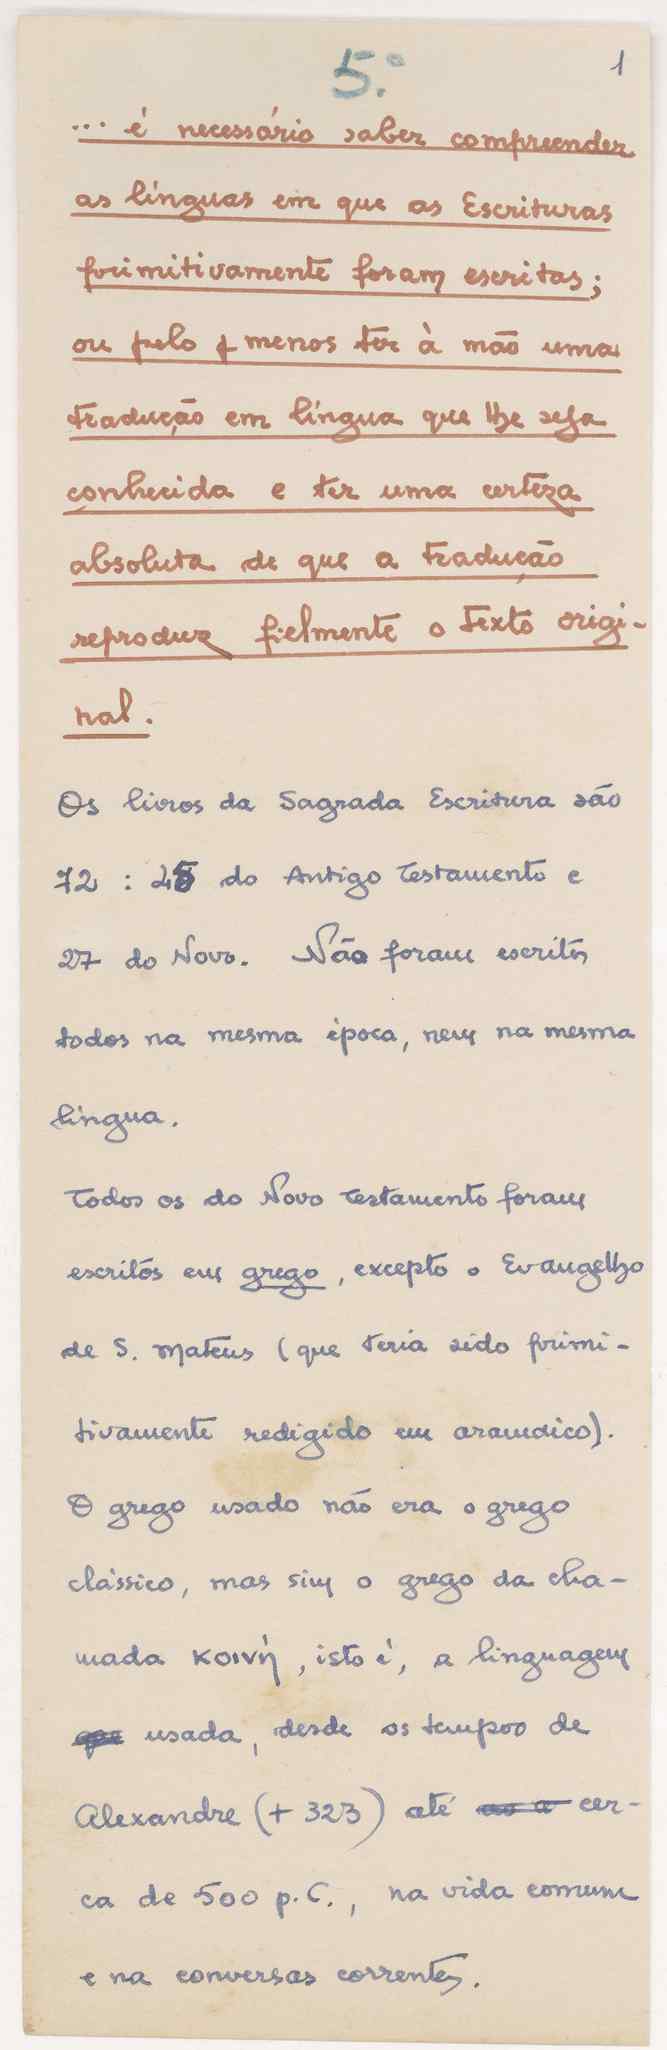 5.º
1
... é necessário saber compreender
as línguas em que as Escrituras
primitivamente foram escritas;
ou pelo menos ter à mão uma
tradução em língua que lhe seja
conhecida e ter uma certeza
absoluta de que a tradução
reproduz fielmente o texto origi-
nal.
Os livros da Sagrada Escritura são
72 : 45 do Antigo Testamento e
27 do Novo. Não foram escritos
todos na mesma época, nem na mesma
língua.
Todos os do Novo Testamento foram
escritos em grego, excepto o Evangelho
de S. Mateus (que teria sido primi-
tivamente redigido em aramaico).
O grego usado não era o grego
clássico, mas sim o grego da cha-
mada κοινή, isto é, a linguagem
que usada, desde os tempos de
Alexandre (+ 323) até ao a cer-
ca de 500 p. C., na vida comum
e na conversas correntes.